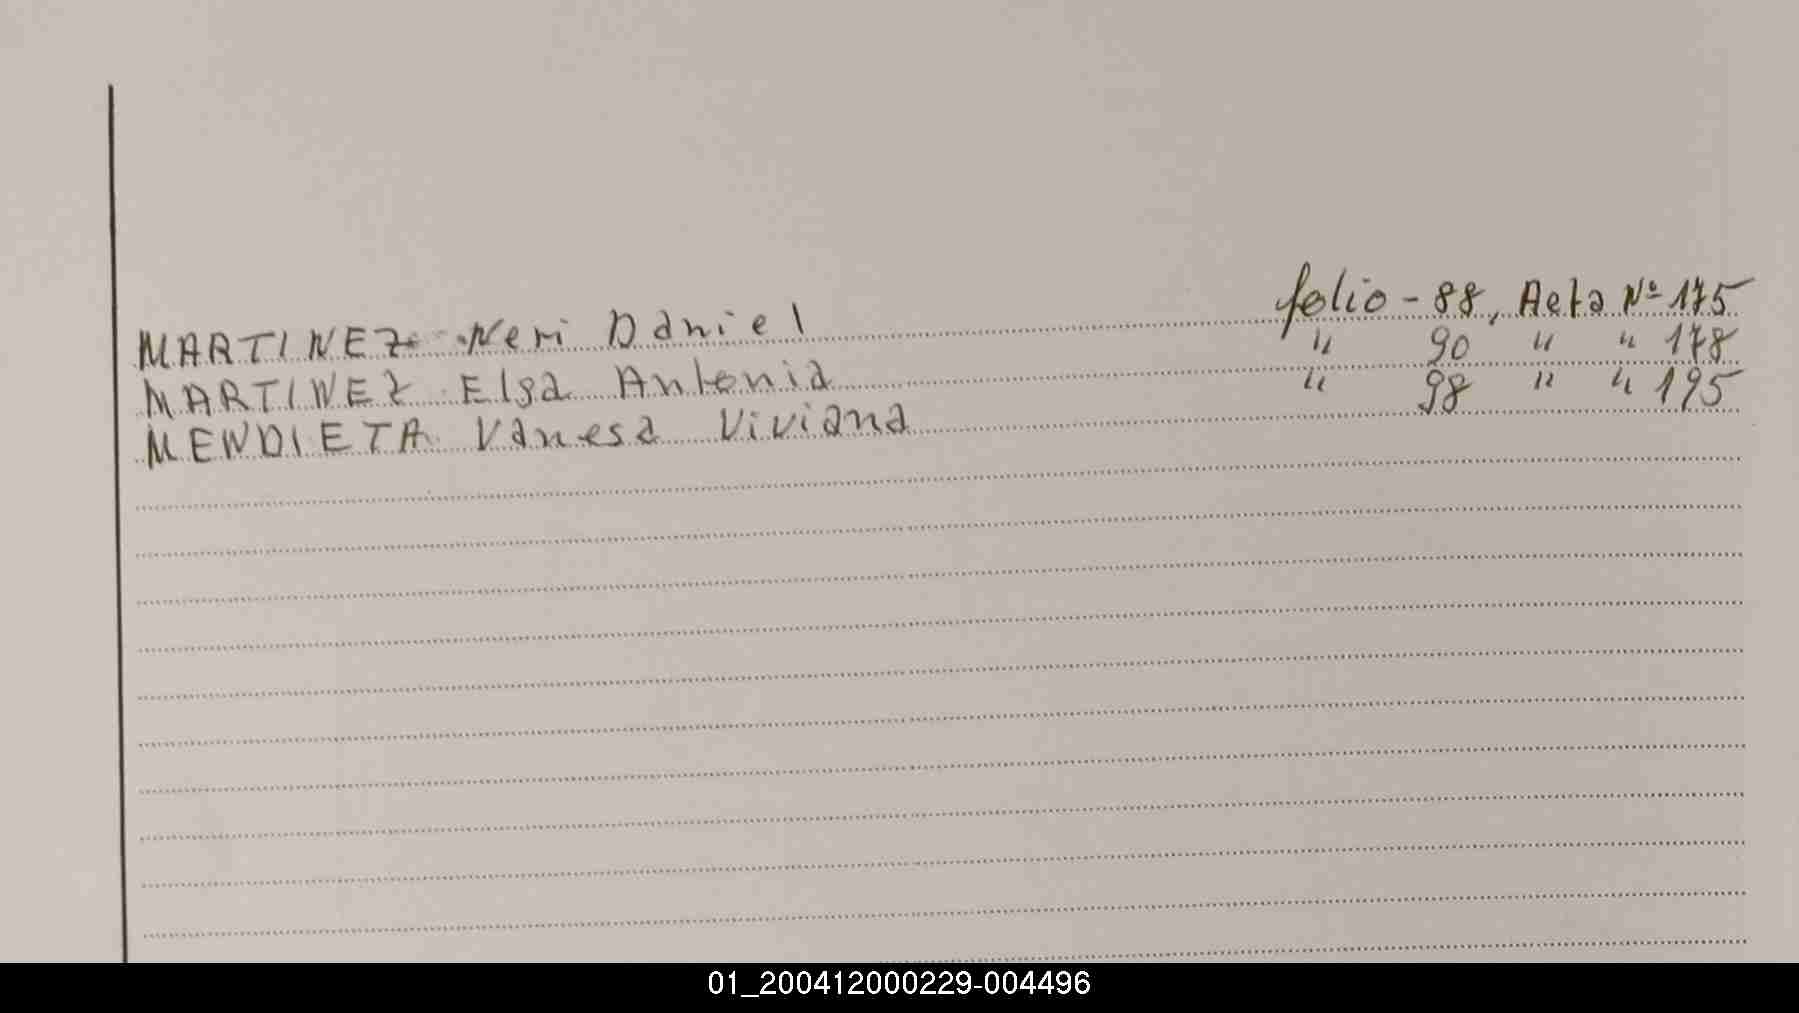 MARTINEZ Neri Daniel folio - 88, Acta Nº 175
MARTINEZ Elsa Antonia " 90 " " 178
MENDIETA Vanesa Viviana " 98 " " 195
01_200412000229-004496